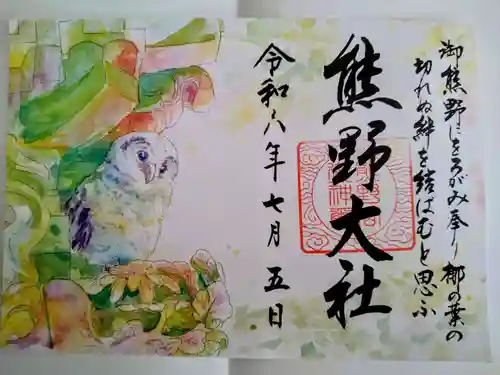 御熊野にをろがみ奉り梛の葉の
切れぬ絆を結ばむと思ふ
熊野大社
令和六年七月五日